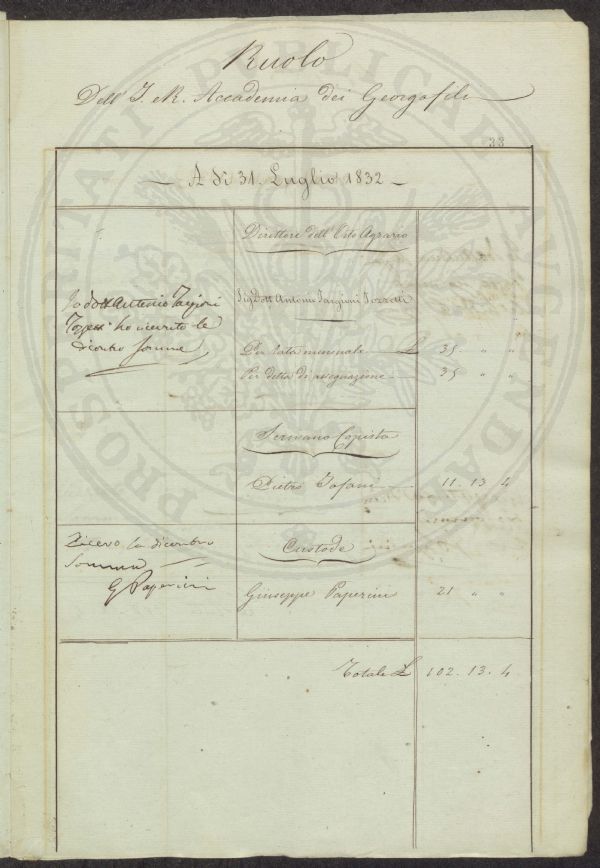 Ruolo
Dell' I. e R. Accademia dei Georgofili
33
A dì 31. Luglio 1832
Direttore dell' Orto Agrario
Io Dott Antonio Targioni
Tozzetti ho ricevuto le
dicontro somme
Sig. Dott Antonio Targioni Tozzetti
Per rata mensuale £ 35. " "
Per detta di assegnazione 35 " "
Scrivano Copista
Pietro Tofani 11. 13. 4
Custode
Ricevo la dicontro
somma
G Paperini
Giuseppe Paperini 21 " "
Totale £ 102. 13. 4
PROSPERITATI PUBLICAE AUGENDAE